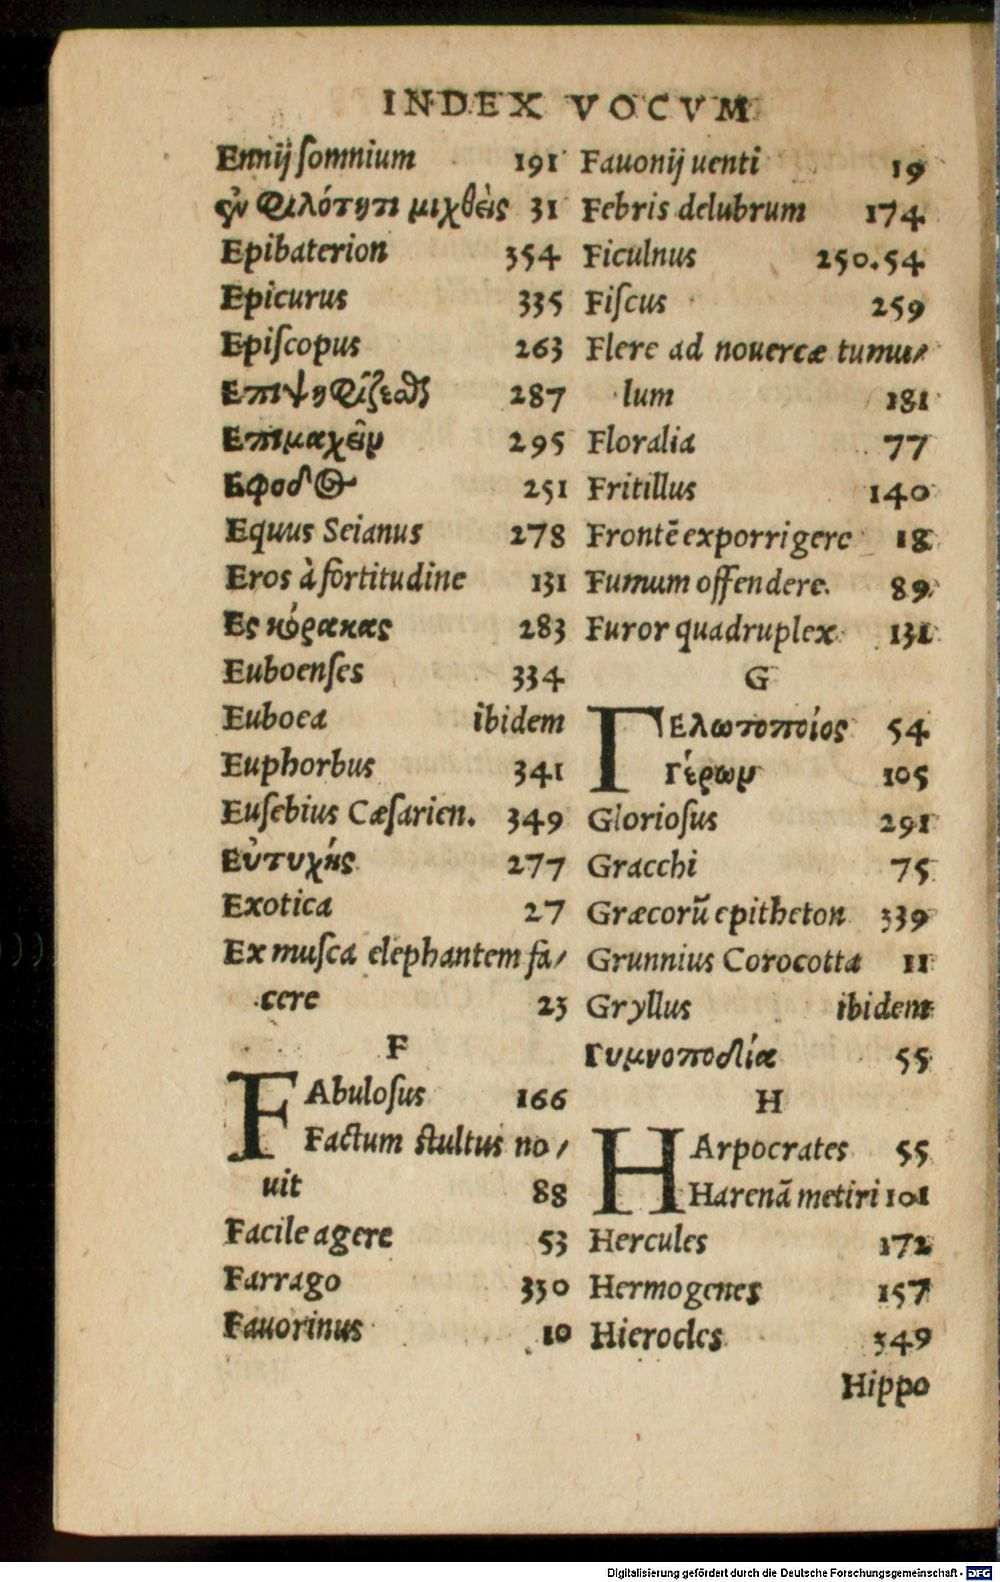 INDEX VOCVM
Ennij ſomnium 191
ἐν φιλότητι μιχθεὶς 31
Epibaterion 354
Epicurus 335
Epiſcopus 263
Επιψηφίζεσθαι 287
Επιμαχεῖν 295
Εφοδος 251
Equus Seianus 278
Eros à fortitudine 131
Ες κόρακας 283
Euboenſes 334
Euboea ibidem
Euphorbus 341
Euſebius Cæſarien. 349
Εὐτυχής 277
Exotica 27
Ex muſca elephantem fa/
cere 23
F
FAbuloſus 166
Factum ſtultus no/
uit 88
Facile agere 53
Farrago 330
Fauorinus 10
Fauonij uenti 19
Febris delubrum 174
Ficulnus 250.54
Fiſcus 259
Flere ad nouercæ tumu/
lum 181
Floralia 77
Fritillus 140
Frontē exporrigere 18
Fumum offendere. 89
Furor quadruplex 131
G
ΓΕλωτοποίος 54
Γέρων 105
Glorioſus 291
Gracchi 75
Græcorū epitheton 339
Grunnius Corocotta 11
Gryllus ibidem
Γυμνοποδία 55
H
HArpocrates 55
Harenā metiri 101
Hercules 172
Hermogenes 157
Hierocles 349
Hippo
Digitalisierung gefördert durch die Deutsche Forschungsgemeinschaft - DFG